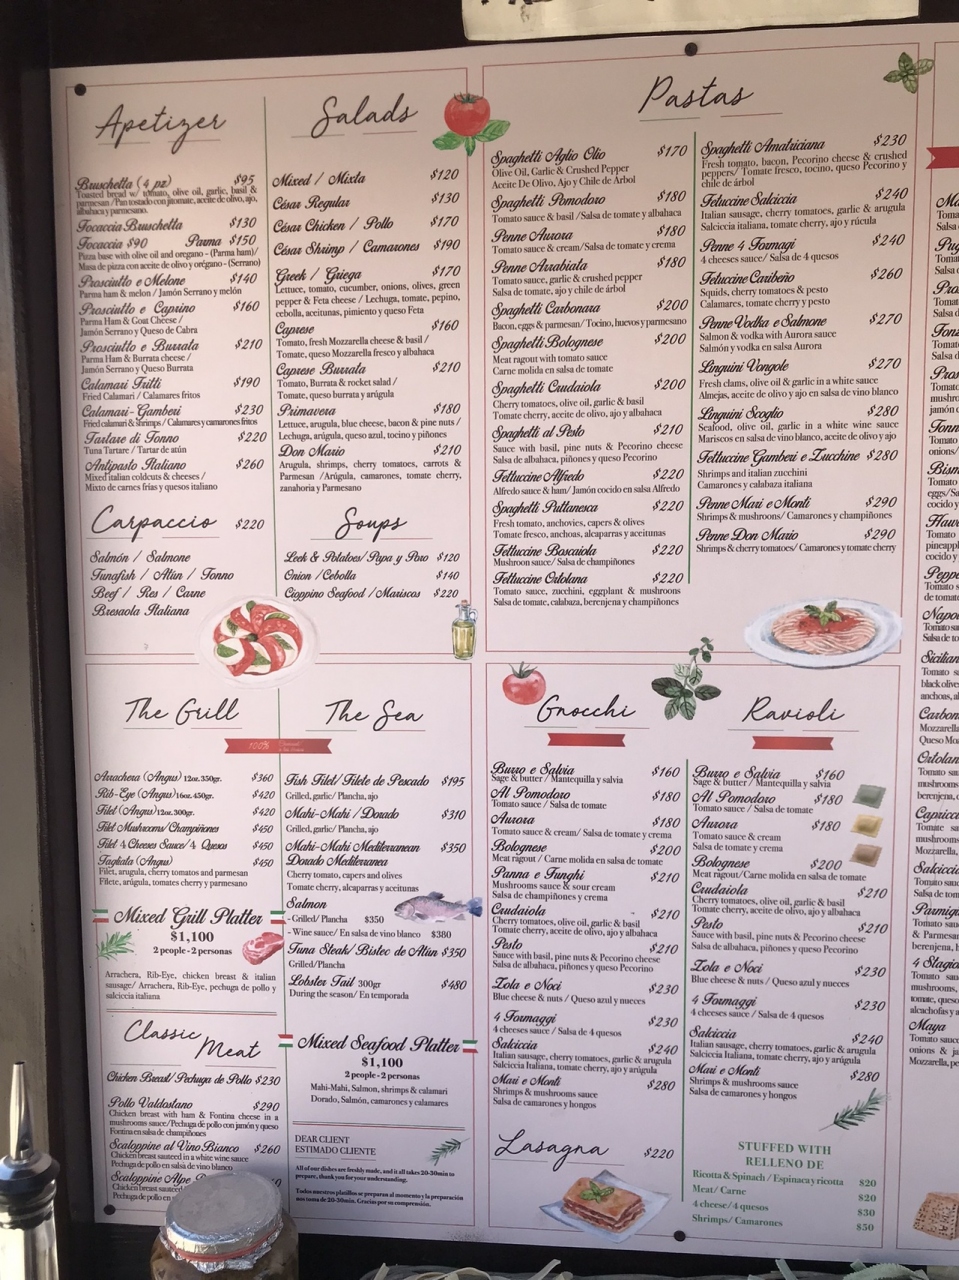 Apetizer
Bruschetta (4 pz) $95
Toasted bread w/ tomato, olive oil, garlic, basil &
parmesan / Pan tostado con jitomate, aceite de olivo, ajo,
albahaca y parmesano.
Focaccia Bruschetta $130
Focaccia $90 Parma $150
Pizza base with olive oil and oregano - (Parma ham)/
Masa de pizza con aceite de olivo y orégano - (Serrano)
Prosciutto e Melone $140
Parma ham & melon / Jamón Serrano y melón
Prosciutto e Caprino $160
Parma Ham & Goat Cheese /
Jamón Serrano y Queso de Cabra
Prosciutto e Burrata $210
Parma Ham & Burrata cheese /
Jamón Serrano y Queso Burrata
Calamari Fritti $190
Fried Calamari / Calamares fritos
Calamari-Gamberi $230
Fried calamari & shrimps / Calamares y camarones fritos
Tartare di Tonno $220
Tuna Tartare / Tartar de atún
Antipasto Italiano $260
Mixed italian coldcuts & cheeses /
Mixto de carnes frías y quesos italiano
Carpaccio $220
Salmón / Salmone
Tunafish / Atún / Tonno
Beef / Res / Carne
Bresaola Italiana
Salads
Mixed / Mixta $120
César Regular $130
César Chicken / Pollo $170
César Shrimp / Camarones $190
Greek / Griega $170
Lettuce, tomato, cucumber, onions, olives, green
pepper & Feta cheese / Lechuga, tomate, pepino,
cebolla, aceitunas, pimiento y queso Feta
Caprese $160
Tomato, fresh Mozzarella cheese & basil /
Tomate, queso Mozzarella fresco y albahaca
Caprese Burrata $210
Tomato, Burrata & rocket salad /
Tomate, queso burrata y arúgula
Primavera $180
Lettuce, arugula, blue cheese, bacon & pine nuts /
Lechuga, arúgula, queso azul, tocino y piñones
Don Mario $210
Arugula, shrimps, cherry tomatoes, carrots &
Parmesan / Arúgula, camarones, tomate cherry,
zanahoria y Parmesano
Soups
Leek & Potatoes/ Papa y Poro $120
Onion / Cebolla $140
Cioppino Seafood / Mariscos $220
Pastas
Spaghetti Aglio Olio $170
Olive Oil, Garlic & Crushed Pepper
Aceite De Olivo, Ajo y Chile de Arbol
Spaghetti Pomodoro $180
Tomato sauce & basil / Salsa de tomate y albahaca
Penne Aurora $180
Tomato sauce & cream/ Salsa de tomate y crema
Penne Arrabiata $180
Tomato sauce, garlic & crushed pepper
Salsa de tomate, ajo y chile de árbol
Spaghetti Carbonara $200
Bacon, eggs & parmesan / Tocino, huevos y parmesano
Spaghetti Bolognese $200
Meat ragout with tomato sauce
Carne molida en salsa de tomate
Spaghetti Crudaiola $200
Cherry tomatoes, olive oil, garlic & basil
Tomate cherry, aceite de olivo, ajo y albahaca
Spaghetti al Pesto $210
Sauce with basil, pine nuts & Pecorino cheese
Salsa de albahaca, piñones y queso Pecorino
Fettuccine Alfredo $220
Alfredo sauce & ham / Jamón cocido en salsa Alfredo
Spaghetti Puttanesca $220
Fresh tomato, anchovies, capers & olives
Tomate fresco, anchoas, alcaparras y aceitunas
Fettuccine Boscaiola $220
Mushroom sauce / Salsa de champiñones
Fettuccine Ortolana $220
Tomato sauce, zucchini, eggplant & mushrooms
Salsa de tomate, calabaza, berenjena y champiñones
Spaghetti Amatriciana $230
Fresh tomato, bacon, Pecorino cheese & crushed
peppers/ Tomate fresco, tocino, queso Pecorino y
chile de árbol
Fetuccine Salciccia $240
Italian sausage, cherry tomatoes, garlic & arugula
Salciccia italiana, tomate cherry, ajo y rúcula
Penne 4 Formagi $240
4 cheeses sauce/ Salsa de 4 quesos
Fetuccine Caribeño $260
Squids, cherry tomatoes & pesto
Calamares, tomate cherry y pesto
Penne Vodka e Salmone $270
Salmon & vodka with Aurora sauce
Salmón y vodka en salsa Aurora
Linguini Vongole $270
Fresh clams, olive oil & garlic in a white sauce
Almejas, aceite de olivo y ajo en salsa en vino blanco
Linguini Scoglio $280
Seafood, olive oil, garlic in a white wine sauce
Mariscos en salsa de vino blanco, aceite de olivo y ajo
Fettuccine Gamberi e Zucchine $280
Shrimps and italian zucchini
Camarones y calabaza italiana
Penne Mari e Monti $290
Shrimps & mushrooms/ Camarones y champiñones
Penne Don Mario $290
Shrimps & cherry tomatoes / Camarones y tomate cherry
The Grill
100%
Arrachera (Angus) 12oz. 350gr. $360
Rib-Eye (Angus) 16oz. 450gr. $420
Filet (Angus) 12oz. 300gr. $420
Filet Mushrooms/ Champiñones $450
Filet 4 Cheeses Sauce/ 4 Quesos $450
Tagliata (Angus) $450
Filet, arugula, cherry tomates and parmesan
Filete, arúgula, tomates cherry y parmesano
Mixed Grill Platter
$1,100
2 people - 2 personas
Arrachera, Rib-Eye, chicken breast & italian
sausage/ Arrachera, Rib-Eye, pechuga de pollo y
salciccia italiana
Classic
Meat
Chicken Breast/ Pechuga de Pollo $230
Pollo Valdostano $290
Chicken breast with ham & Fontina cheese in a
mushrooms sauce/ Pechuga de pollo con jamón y queso
Fontina en salsa de champiñones
Scaloppine al Vino Bianco $260
Chicken breast sauteed in a white wine sauce
Pechuga de pollo en salsa de vino blanco
Scaloppine Alpe
Chicken breast sauteed
Pechuga de pollo en
The Sea
Fish Filet/ Filete de Pescado $195
Grilled, garlic/ Plancha, ajo
Mahi-Mahi / Dorado $310
Grilled, garlic/ Plancha, ajo
Mahi-Mahi Mediterranean $350
Dorado Mediteranea
Cherry tomato, capers and olives
Tomate cherry, alcaparras y aceitunas
Salmon
- Grilled/ Plancha $350
- Wine sauce/ En salsa de vino blanco $380
Tuna Steak/ Bistec de Atún $350
Grilled/Plancha
Lobster Tail 300gr $480
During the season/ En temporada
Mixed Seafood Platter
$1,100
2 people - 2 personas
Mahi-Mahi, Salmon, shrimps & calamari
Dorado, Salmón, camarones y calamares
DEAR CLIENT
ESTIMADO CLIENTE
All of our dishes are freshly made, and it all takes 20-30min to
prepare, thank you for your understanding.
Todos nuestros platillos se preparan al momento y la preparación
nos toma de 20-30min. Gracias por su comprensión.
Gnocchi
Burro e Salvia $160
Sage & butter / Mantequilla y salvia
Al Pomodoro $180
Tomato sauce / Salsa de tomate
Aurora $180
Tomato sauce & cream/ Salsa de tomate y crema
Bolognese $200
Meat ragout / Carne molida en salsa de tomate
Panna e Funghi $210
Mushrooms sauce & sour cream
Salsa de champiñones y crema
Crudaiola $210
Cherry tomatoes, olive oil, garlic & basil
Tomate cherry, aceite de olivo, ajo y albahaca
Pesto $210
Sauce with basil, pine nuts & Pecorino cheese
Salsa de albahaca, piñones y queso Pecorino
Zola e Noci $230
Blue cheese & nuts / Queso azul y nueces
4 Formaggi $230
4 cheeses sauce / Salsa de 4 quesos
Salciccia $240
Italian sausage, cherry tomatoes, garlic & arugula
Salciccia Italiana, tomate cherry, ajo y arúgula
Mari e Monti $280
Shrimps & mushrooms sauce
Salsa de camarones y hongos
Lasagna $220
Ravioli
Burro e Salvia $160
Sage & butter / Mantequilla y salvia
Al Pomodoro $180
Tomato sauce / Salsa de tomate
Aurora $180
Tomato sauce & cream
Salsa de tomate y crema
Bolognese $200
Meat ragout/ Carne molida en salsa de tomate
Crudaiola $210
Cherry tomatoes, olive oil, garlic & basil
Tomate cherry, aceite de olivo, ajo y albahaca
Pesto $210
Sauce with basil, pine nuts & Pecorino cheese
Salsa de albahaca, piñones y queso Pecorino
Zola e Noci $230
Blue cheese & nuts / Queso azul y nueces
4 Formaggi $230
4 cheeses sauce / Salsa de 4 quesos
Salciccia $240
Italian sausage, cherry tomatoes, garlic & arugula
Salciccia Italiana, tomate cherry, ajo y arúgula
Mari e Monti $280
Shrimps & mushrooms sauce
Salsa de camarones y hongos
STUFFED WITH
RELLENO DE
Ricotta & Spinach / Espinaca y ricotta $20
Meat/ Carne $20
4 cheese/ 4 quesos $30
Shrimps/ Camarones $50